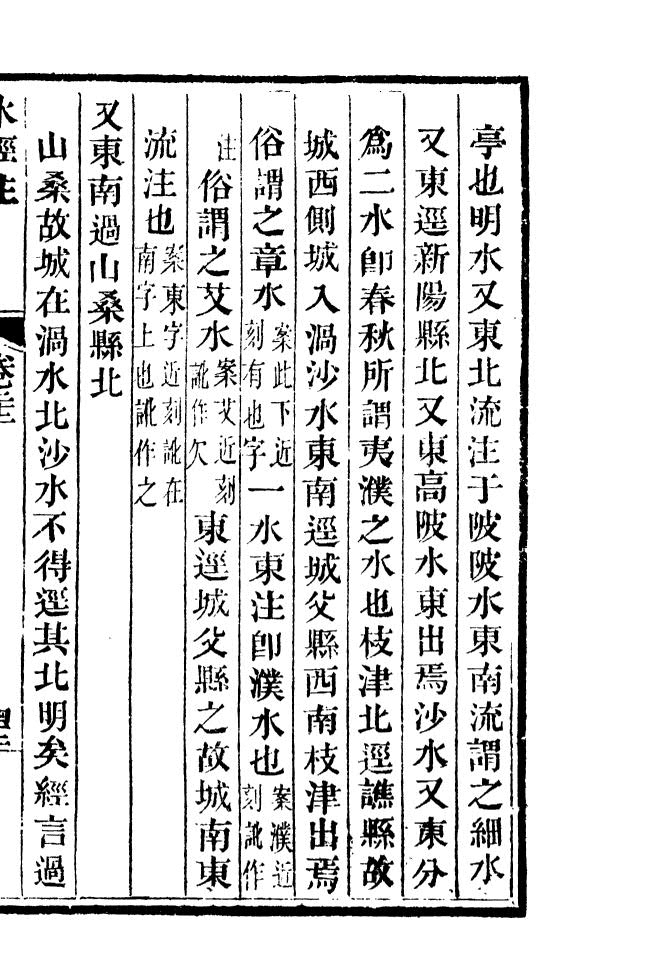 亭也明水又東北流注于陂陂水東南流謂之細水
又東逕新陽縣北又東高陂水東出焉沙水又東分
爲二水卽春秋所謂夷濮之水也枝津北逕譙縣故
城西側城入渦沙水東南逕城父縣西南枝津出焉
俗謂之章水案此下近刻有也字一水東注卽濮水也案濮近刻訛作
注俗謂之艾水案艾近刻訛作欠東逕城父縣之故城南東
流注也案東字近刻訛在南字上也訛作之
又東南過山桑縣北
山桑故城在渦水北沙水不得逕其北明矣經言過
水經注
卷二十二